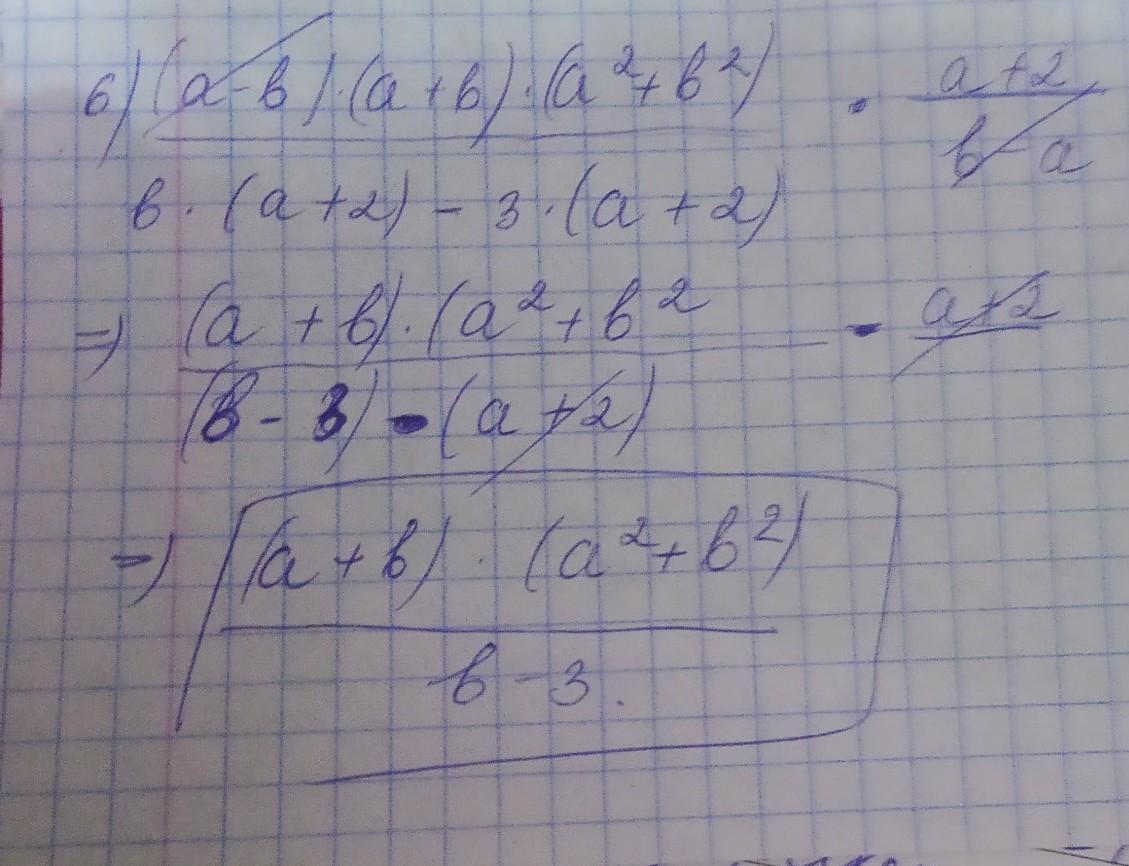 6) (a-b)·(a+b)·(a²+b²) · a+2
b·(a+2)-3·(a+2) b-a
=) (a+b)·(a²+b² · a+2
(b-3)·(a+2)
=) (a+b)·(a²+b²)
b-3.